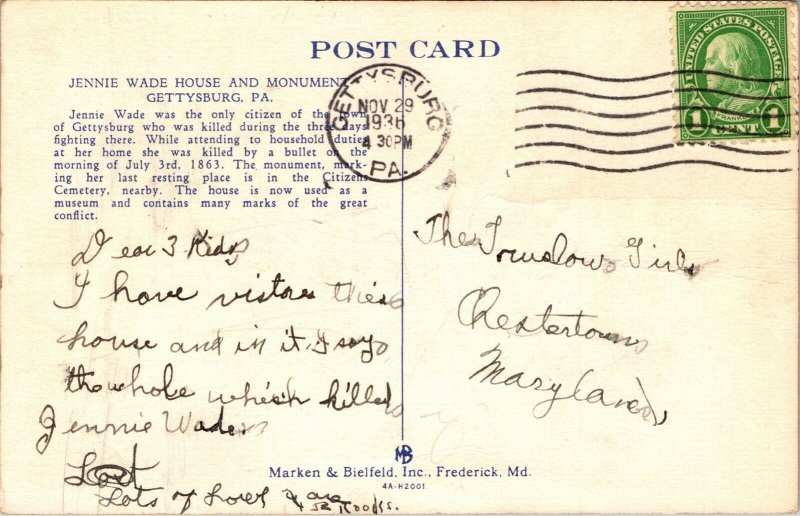 POST CARD
JENNIE WADE HOUSE AND MONUMENT
GETTYSBURG, PA.
Jennie Wade was the only citizen of the town
of Gettysburg who was killed during the three days
fighting there. While attending to household duties
at her home she was killed by a bullet on the
morning of July 3rd, 1863. The monument, mark-
ing her last resting place is in the Citizens
Cemetery, nearby. The house is now used as a
museum and contains many marks of the great
conflict.
GETTYSBURG
NOV 29
1936
4 30PM
PA.
UNITED STATES POSTAGE
FRANKLIN
1 CENT 1
Dear 3 Kids
I have these
house and in it I say
the whole which killed
Jennie Wade
Lots of Love &
The Truslow Girls
Chestertown
Maryland,
MB
Marken & Bielfeld, Inc., Frederick, Md.
4A-H2001